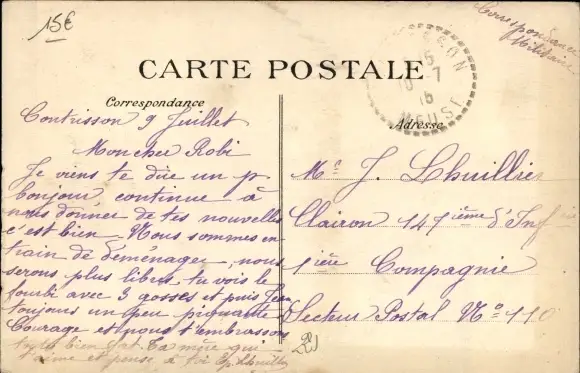 15€
Correspondance
Militaire
CARTE POSTALE
Correspondance
Adresse
MEUSE
Contrisson 9 Juillet
Mon cher Robi
Je viens te dire un p
bonjour continue à
nous donner de tes nouvelles
c'est bien. Nous sommes en
train de déménager, nous
serons plus libres, tu vois le
fourbi avec 3 gosses et puis
toujours un peu
Courage et nous t'embrassons
tous bien fort. Ta mère qui
t'aime et pense à toi Ep. Lhuillier
Mr. J. Lhuillier
Clairon 147ième d'Inf
1ière Compagnie
Secteur Postal No 110